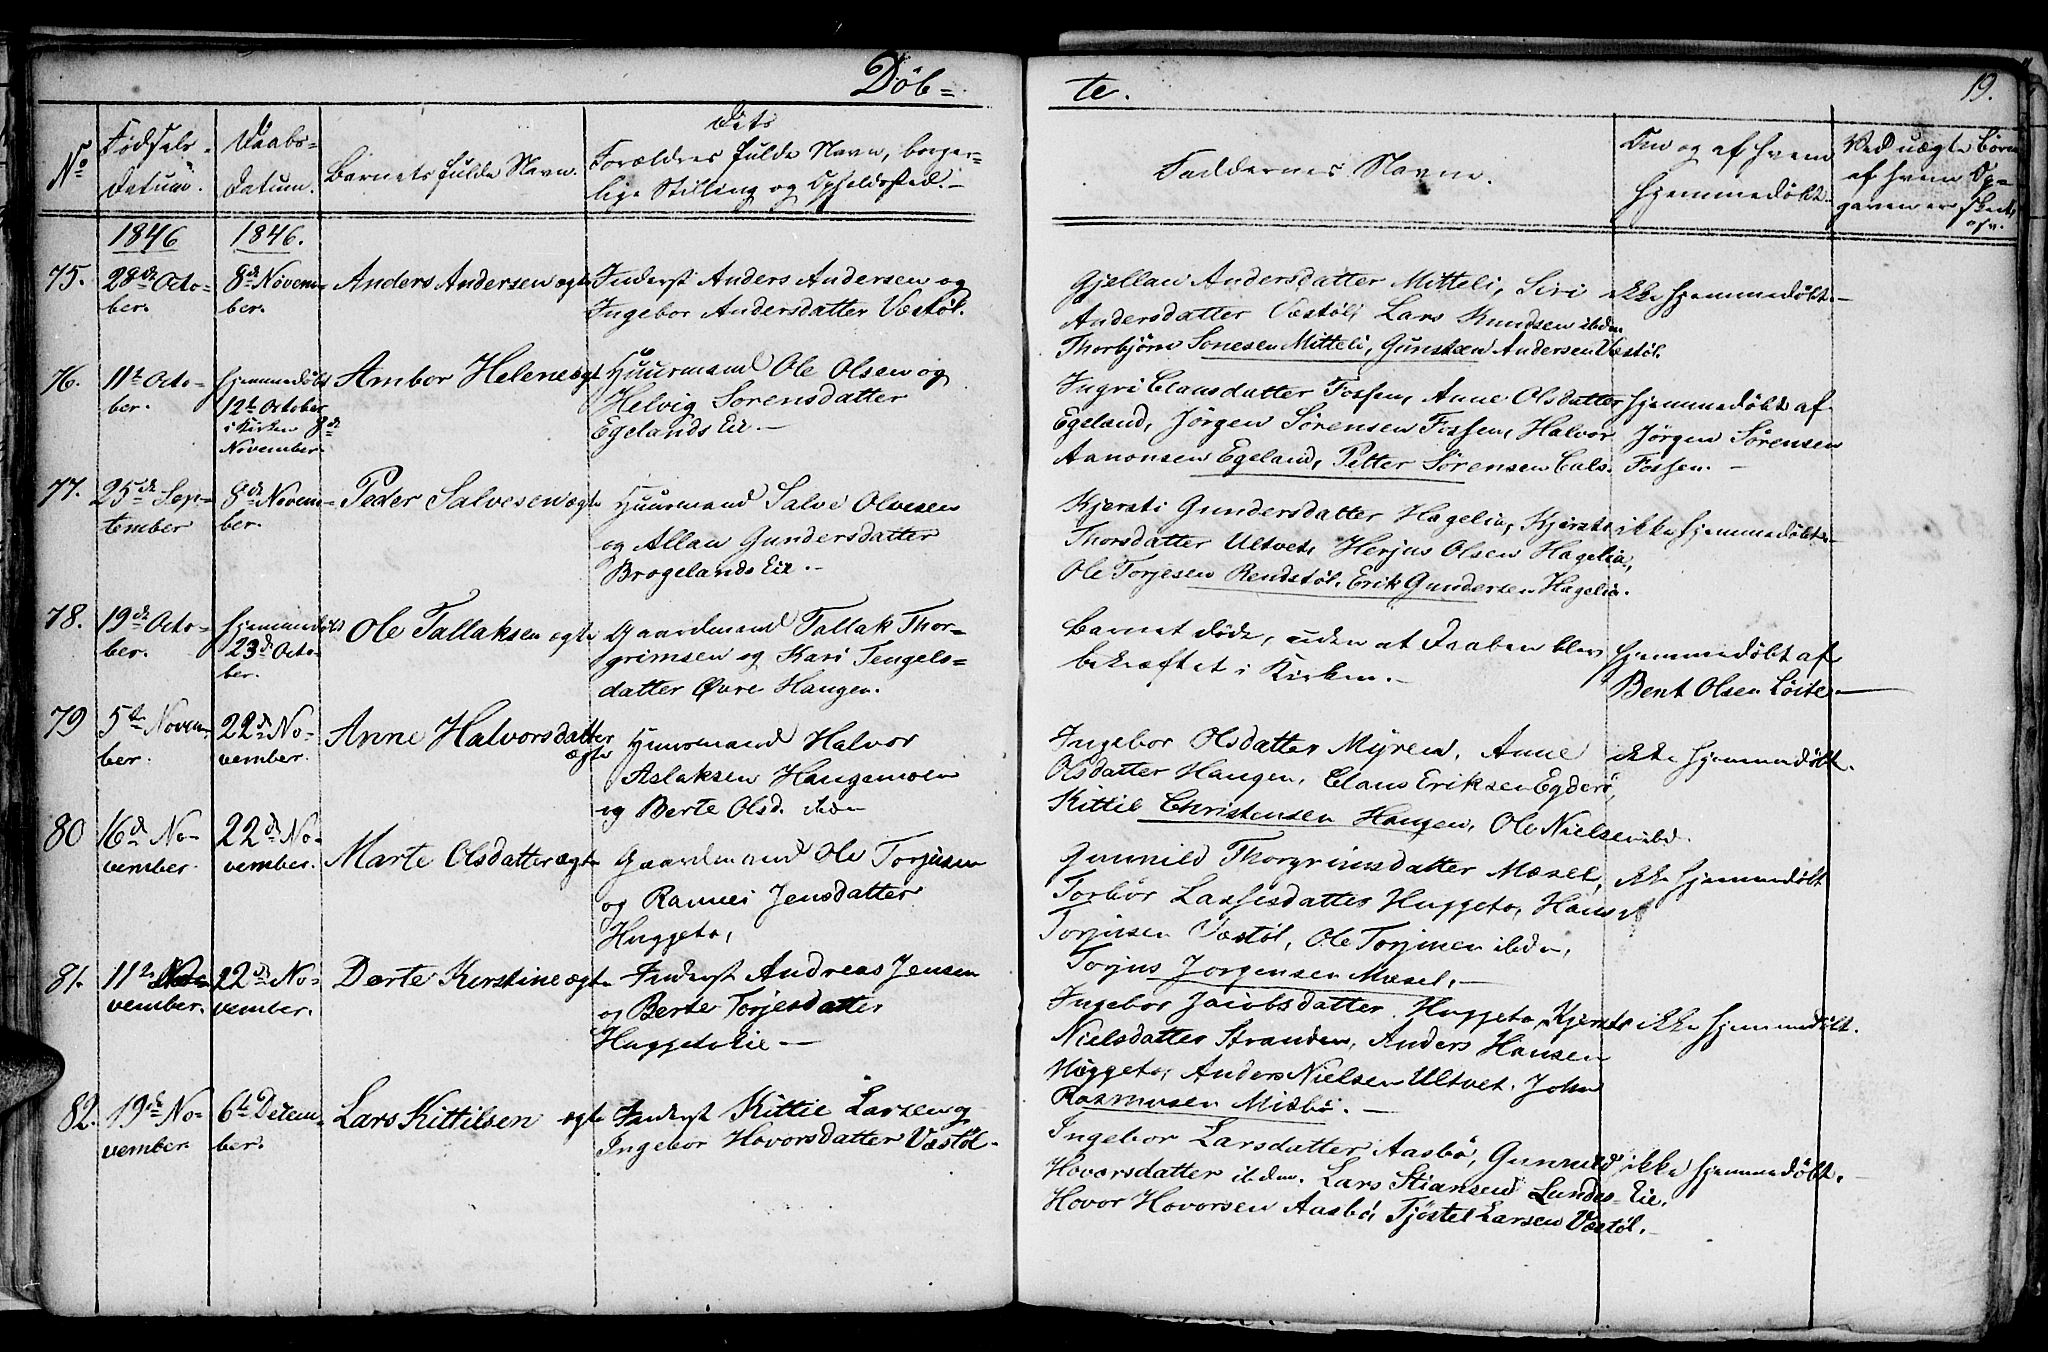 Döb=
te.
19.
No
Födsels-
datum.
Daabs-
datum.
Barnets fulde Navn.
dets
Forældres fulde Navn, borger-
lige Stilling og Opholdssted.-
Faddernes Navne.
Om og af hvem
hjemmedöbt.
Ved uægte Börn
af hvem Op-
gaven er skeet
osv.
1846
1846.
75.
28de Octo-
ber.
8de Novem-
ber.
Anders Andersen ægte
Inderst Anders Andersen og
Ingebor Andersdatter Væstöl.
Gjellau Andersdatter Mitteli, Siri
Andersdatter Væstöl, Lars Knudsen ibdm
Thorbjörn Sonesen Mitteli, Gunstæn Andersen Væstöl.
ikke hjemmedöbt.-
76.
11te Octo-
ber.
hjemmedöbt
12te October
i Kirken 8de
November
Ambor Helene ægte
Huusmand Ole Olsen og
Helvig Sörensdatter
Egelands Eie.-
Ingri Clausdatter Fossen, Anne Olsdatter
Egeland, Jörgen Sörensen Fossen, Halvor
Aanonsen Egeland, Petter Sörensen
hjemmedöbt af
Jörgen Sörensen
Fossen.-
77.
25de Sep-
tember
8de Novem-
ber.
Peder Salvesen ægte
Huusmand Salve Olvesen
og Allau Gundersdatter
Brogelands Eie.-
Kjersti Gundersdatter Hagelia, Kjersti
Thorsdatter Ultvet, Herjus Olsen Hagelia,
Ole Torjesen Rendstöl, Erik Gundersen Hagelia.
ikke hjemmedöbt.-
78.
19de Octo-
ber.
hjemmedöbt
23de Octo-
ber.
Ole Tallaksen ægte
Gaardmand Tallak Thor-
grimsen og Kari Tengels-
datter Övre Haugen.
Barnet döde, uden at Daaben blev
bekræftet i Kirken.-
hjemmedöbt af
Bent Olsen Löite.-
79
5te Novem-
ber.
22de No-
vember.
Anne Halvorsdatter
ægte
Huusmand Halvor
Aslaksen Haugemoen
og Berte Olsd. ibdm
Ingebor Olsdatter Myren, Anne
Olsdatter Haugen, Claus Eriksen Egderö,
Kittil Christensen Haugen, Ole Nielsen ibd.
ikke hjemmedöbt.
80
16de No-
vember.
22de No-
vember.
Marte Olsdatter ægte
Gaardmand Ole Torjusen
og Ramnei Jensdatter
Huggeto,
Gunnild Thorgrimsdatter Mæsel,
Torbör Lassesdatter Huggeto, Hans
Torjusen Væstöl, Ole Torjusen ibdm,
Torjus Jörgensen Mæsel.-
ikke hjemmedöbt
81.
11te No-
vember.
22de No-
vember.
Dorte Kirstine ægte
Inderst Andreas Jensen
og Berte Torjesdatter
Huggeto Eie-
Ingebor Jacobsdatter Huggeto, Kjersti
Nielsdatter Stranden, Anders Hansen
Huggeto, Anders Nielsen Ultvet, John
Rasmusen Misbö.-
ikke hjemmedöbt.
82.
19de No-
vember.
6te Decem-
ber.
Lars Kittilsen ægte
Inderst Kittil Larsen og
Ingebor Hovorsdatter Væstöl.
Ingebor Larsdatter Aasbö, Gunnild
Hovorsdatter ibdm. Lars Stiansen Lundes-Eie,
Hovor Hovorsen Aasbö, Tjöstel Larsen Væstöl.-
ikke hjemmedöbt.